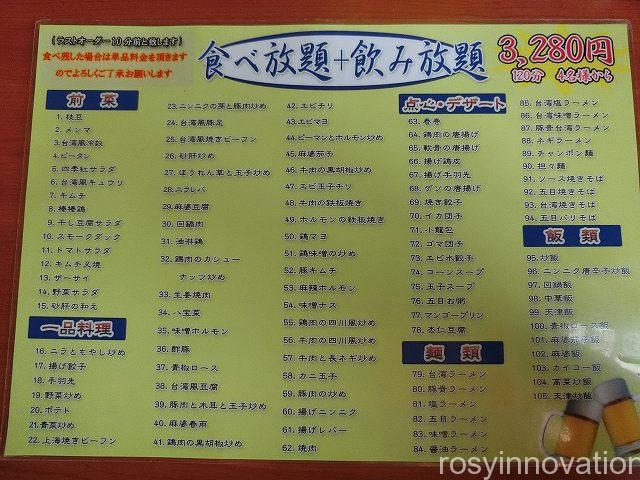 [ラストオーダー10分前と致します]
食べ残した場合は単品料金を頂きます
のでよろしくご了承お願いします
食べ放題+飲み放題
3,280円
120分 4名様から
前菜
1. 枝豆
2. メンマ
3. 台湾風冷奴
4. ピータン
5. 四季紅サラダ
6. 台湾風キュウリ
7. キムチ
8. 棒棒鶏
9. 干し豆腐サラダ
10. スモークダック
11. トマトサラダ
12. キムチ叉焼
13. ザーサイ
14. 野菜サラダ
15. 砂肝の和え
一品料理
16. ニラともやし炒め
17. 揚げ餃子
18. 手羽先
19. 野菜炒め
20. ポテト
21. 青菜炒め
22. 上海焼きビーフン
23. ニンニクの芽と豚肉炒め
24. 台湾風豚足
25. 台湾風焼きビーフン
26. 砂肝炒め
27. ほうれん草と玉子炒め
28. ニラレバ
29. 麻婆豆腐
30. 回鍋肉
31. 油淋鶏
32. 鶏肉のカシュー
ナッツ炒め
33. 生姜焼肉
34. 八宝菜
35. 味噌ホルモン
36. 酢豚
37. 青椒ロース
38. 台湾風豆腐
39. 豚肉と木耳と玉子炒め
40. 麻婆春雨
41. 鶏肉の黒胡椒炒め
42. エビチリ
43. エビマヨ
44. ピーマンとホルモン炒め
45. 麻婆茄子
46. 牛肉の黒胡椒炒め
47. エビ玉子チリ
48. 牛肉の鉄板焼き
49. ホルモンの鉄板焼き
50. 鶏マヨ
51. 鶏味噌の炒め
52. 豚キムチ
53. 麻辣ホルモン
54. 味噌ナス
55. 鶏肉の四川風炒め
56. 牛肉の四川風炒め
57. 牛肉と長ネギ炒め
58. カニ玉子
59. 豚肉の炒め
60. 揚げニンニク
61. 揚げレバー
62. 焼肉
点心・デザート
63. 春巻
64. 鶏肉の唐揚げ
65. 軟骨の唐揚げ
66. 揚げ鶏皮
67. 揚げ手羽先
68. ゲソの唐揚げ
69. 焼き餃子
70. イカ団子
71. 小籠包
72. ゴマ団子
73. エビ水餃子
74. コーンスープ
75. 玉子スープ
76. 五目お粥
77. マンゴープリン
78. 杏仁豆腐
麺類
79. 台湾ラーメン
80. 豚骨ラーメン
81. 塩ラーメン
82. 五目ラーメン
83. 味噌ラーメン
84. 醤油ラーメン
85. 台湾塩ラーメン
86. 台湾味噌ラーメン
87. 豚骨台湾ラーメン
88. ネギラーメン
89. チャンポン麺
90. 担々麺
91. ソース焼きそば
92. 五目焼きそば
93. 台湾焼きそば
94. 五目バリそば
飯類
95. 炒飯
96. ニンニク唐辛子炒飯
97. 回鍋飯
98. 中華飯
99. 天津飯
100. 青椒ロース飯
101. 麻婆茄子飯
102. 麻婆飯
103. カイコー飯
104. 高菜炒飯
105. 天津炒飯
rosyinnovation